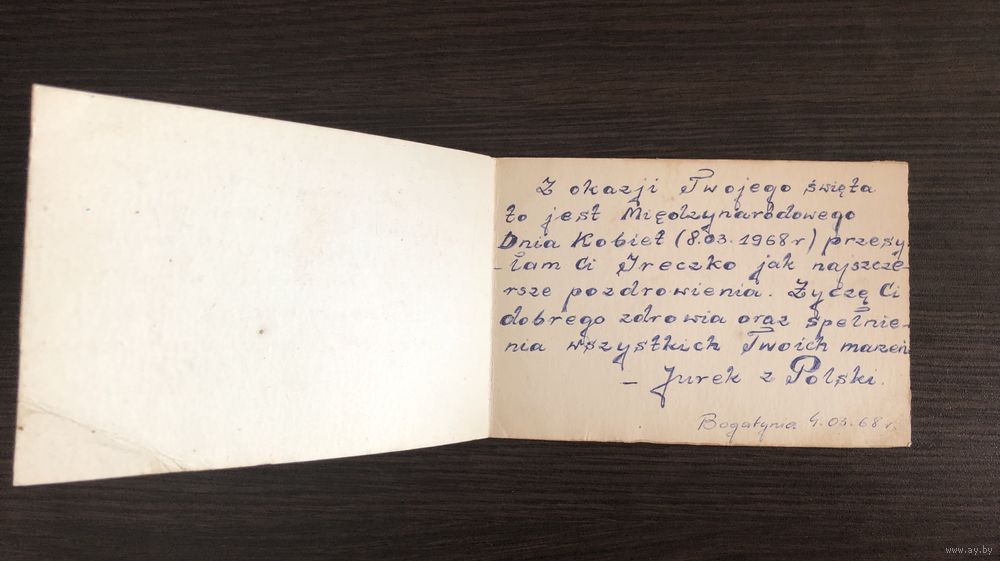 Z okazji Twojego święta
to jest Międzynarodowego
Dnia Kobiet (8.03.1968r) przesy
-łam Ci Ireczko jak najszcze-
rsze pozdrowienia. Życzę Ci
dobrego zdrowia oraz spełnie-
nia wszystkich Twoich marzeń
- Jurek z Polski.
Bogatynia 4.03.68 r.
www.ay.by